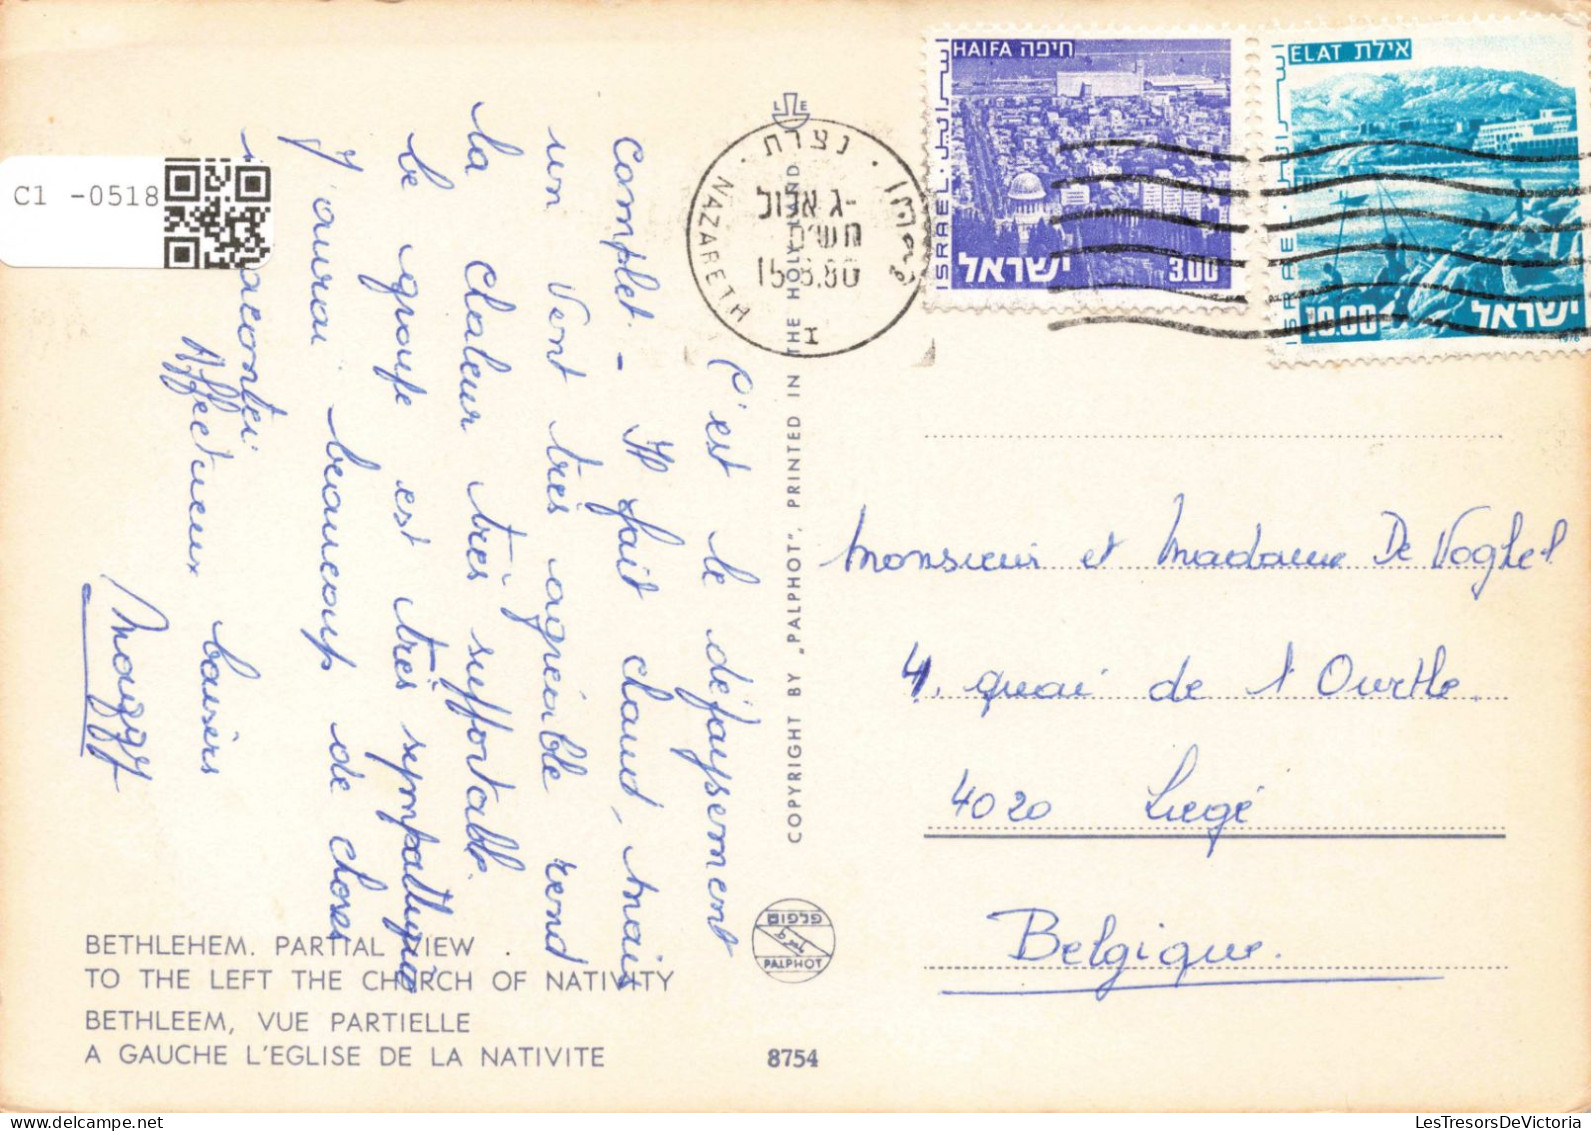 C1 -0518
C'est le dépaysement
complet - Il fait chaud, mais
un vent très agréable rend
la chaleur très supportable.
Le groupe est très sympathique
J'aurai beaucoup de choses
raconter.
Affectueux baisers
Maggy
BETHLEHEM. PARTIAL VIEW
TO THE LEFT THE CHURCH OF NATIVITY
BETHLEEM, VUE PARTIELLE
A GAUCHE L'EGLISE DE LA NATIVITE
8754
COPYRIGHT BY "PALPHOT", PRINTED IN THE HOLY LAND
L E
פלפוט
PALPHOT
נצרת
NAZARETH
ג- אלול
תש"מ
15.8.80
I
ISRAEL
HAIFA חיפה
ישראל 3.00
ISRAEL
ELAT אילת
10.00 ישראל
1976
Monsieur et Madame De Voghel
4, quai de l'Ourthe
4020 Liegé
Belgique.
LesTresorsDeVictoria